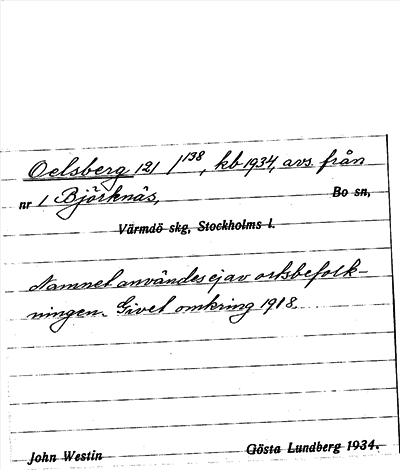 Oelsberg 121/138, kb 1934, avs. från
nr 1 Björknäs, Bo sn,
Värmdö skg, Stockholms l.
Namnet användes ej av ortsbefolk-
ningen. Givet omkring 1918.
John Westin Gösta Lundberg 1934.